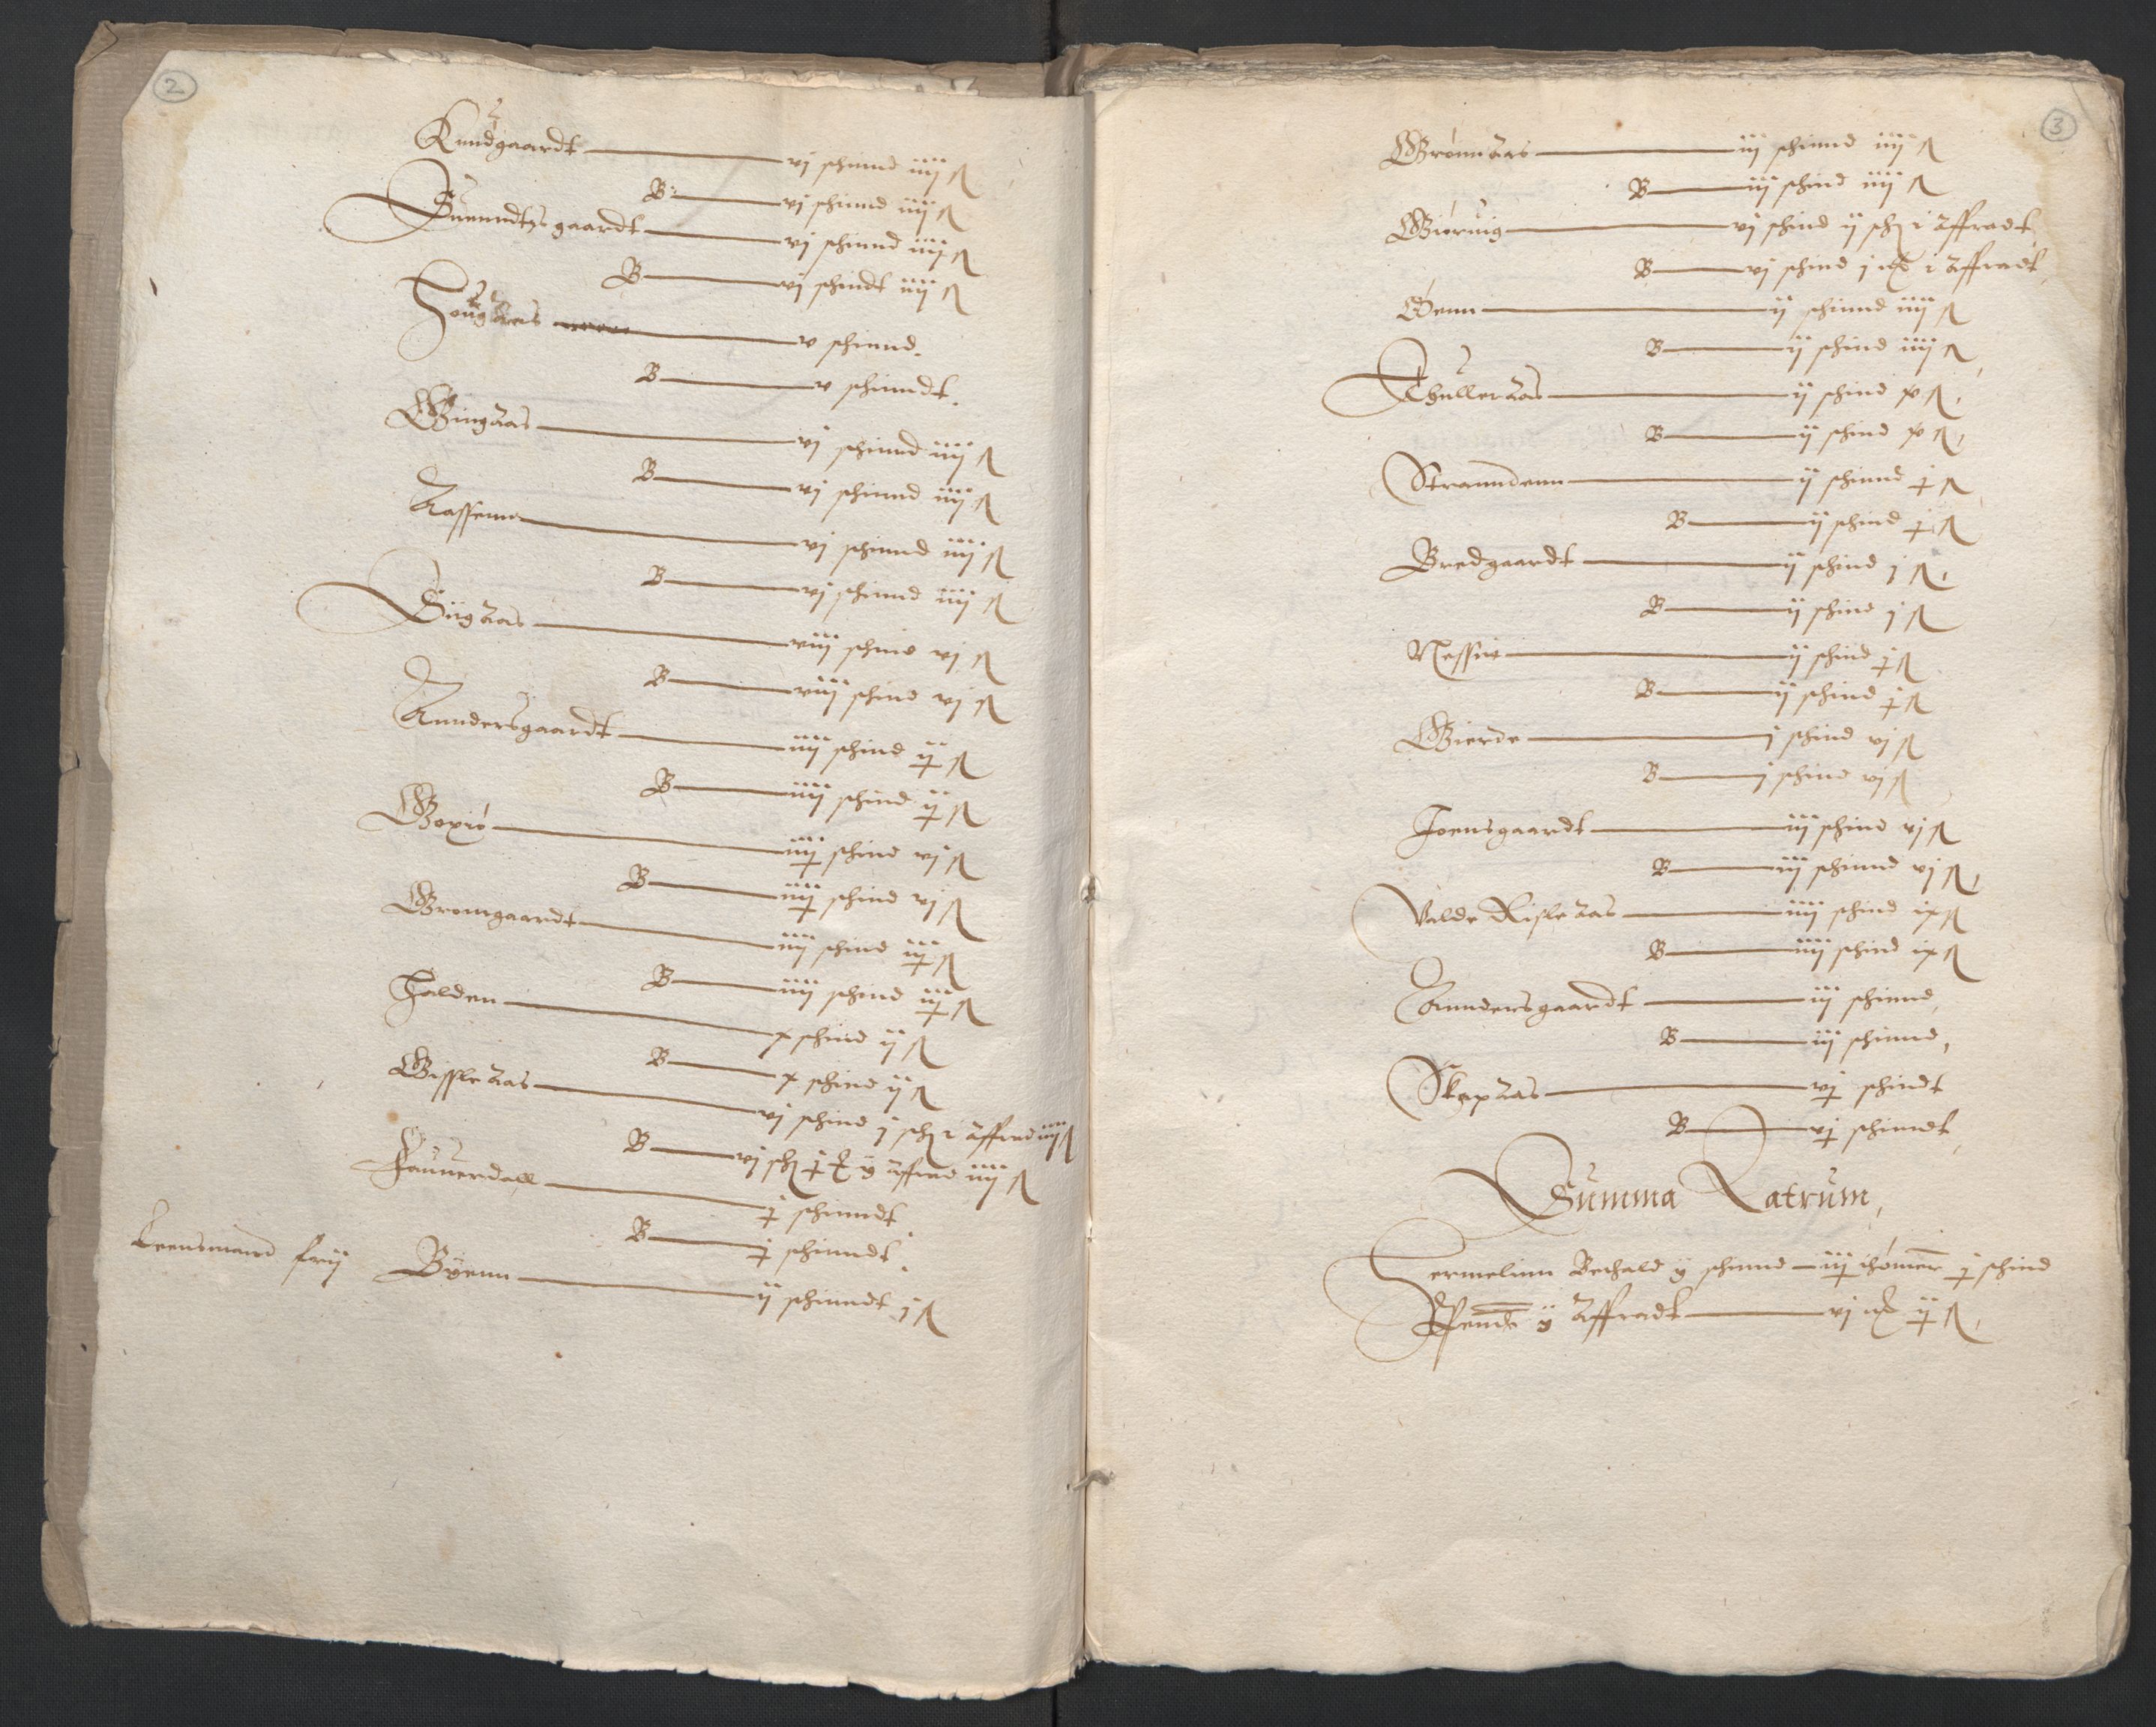 2
Knudgaardt vj schinnd iiij ß
B vj schinnd iiij ß
Suenndtzgaardt vj schinnd iiij ß
B vj schindt iiij ß
Hougaas v schinnd.
B v schinndt.
Gingaas vj schinnd iiij ß
B vj schinnd iiij ß
Aassenn vj schinnd iiij ß
B vj schinnd iiij ß
Siigaas viij schind vj ß
B viij schind vj ß
Anndersgaardt iiij schind ij ß
B iiij schind ij ß
Goxiø iiij schind vj ß
B iiij schind vj ß
Gromgaardt iiij schind iij ß
B iiij schind iij ß
Halden x schind ij ß
B x schind ij ß
Gissleaas vj schind j sch i affrad iiij ß
B vj sch j y affrad iiij ß
Fauuerdall j schinndt
B j schinndt.
Leensmannd frij Byenn ij schinndt j ß
3
Grønnaas iij schinnd iiij ß
B iij schind iiij ß
Giøruig vj schind ij sch i affradt
B vj schind j mk i affradt
Øenn ij schinnd iiij ß
B ij schind iiij ß
Thulleraas ij schind x ß
B ij schind x ß
Stranndenn ij schinnd j ß
B ij schind j ß
Bredgaardt ij schind j ß
B ij schind j ß
Nessitt ij schind j ß
B ij schind j ß
Gierde j schind vj ß
B j schind vj ß
Joensgaardt iij schind vj ß
B iij schinnd vj ß
Valde Risleaas iiij schind ix ß
B iiij schind ix ß
Anndersgaardt iij schinnd
B iij schinnd
Skepaas vj schindt
B vj schinndt
Summa Latrum
Hermelinn Bethald y schinnd iij thømer j schind
Pende y Affradt vj mk ij ß